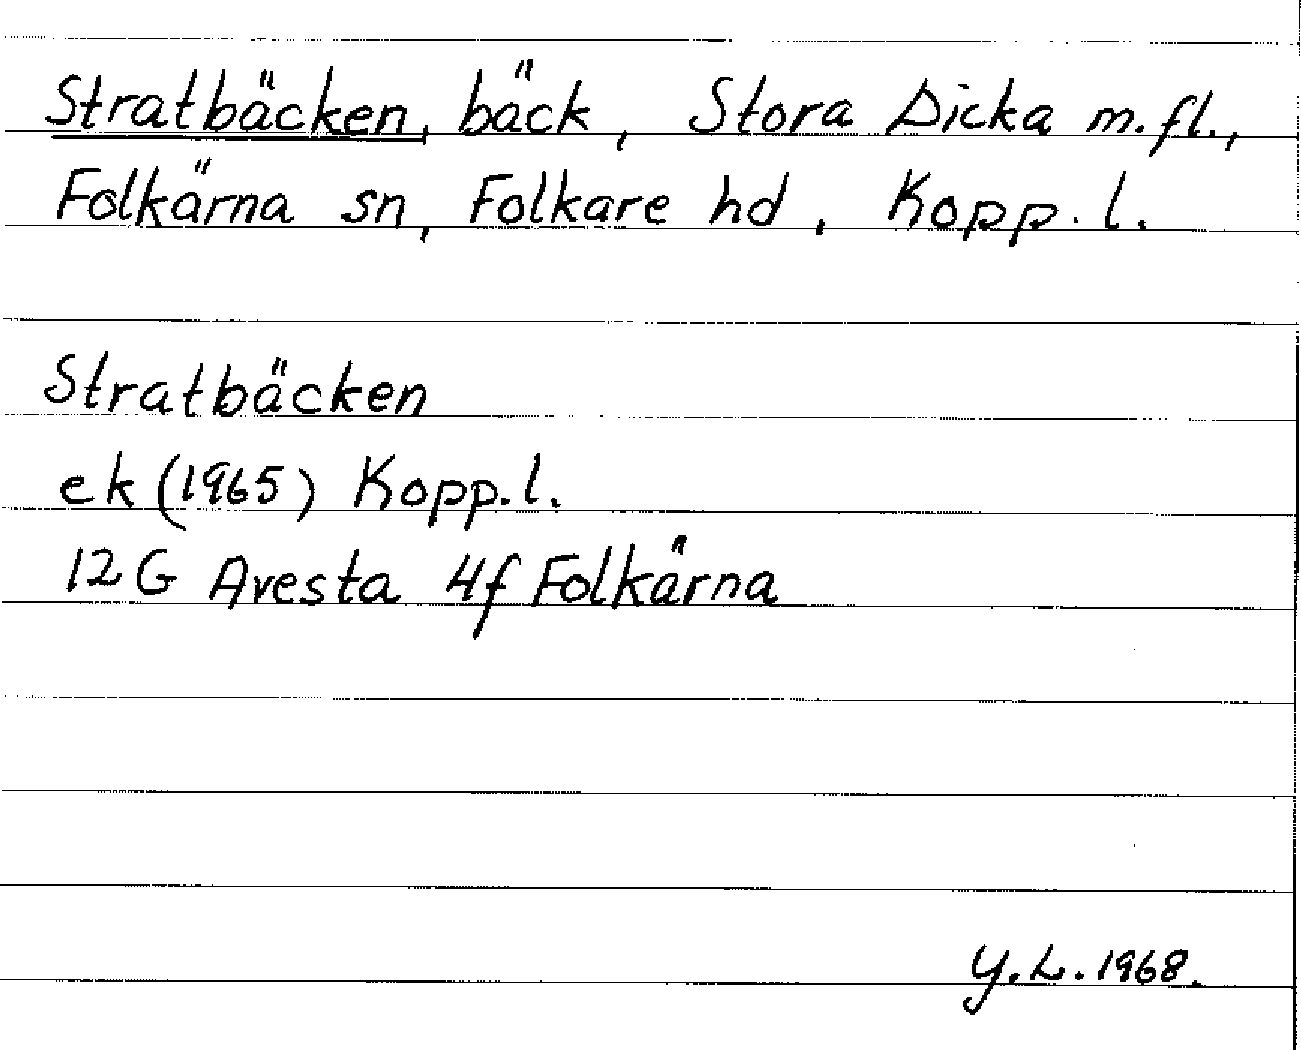 Stratbäcken, bäck, Stora Dicka m.fl.,
Folkärna sn, Folkare hd, Kopp. l.
Stratbäcken
ek (1965) Kopp. l.
12G Avesta 4f Folkärna
Y.L. 1968.